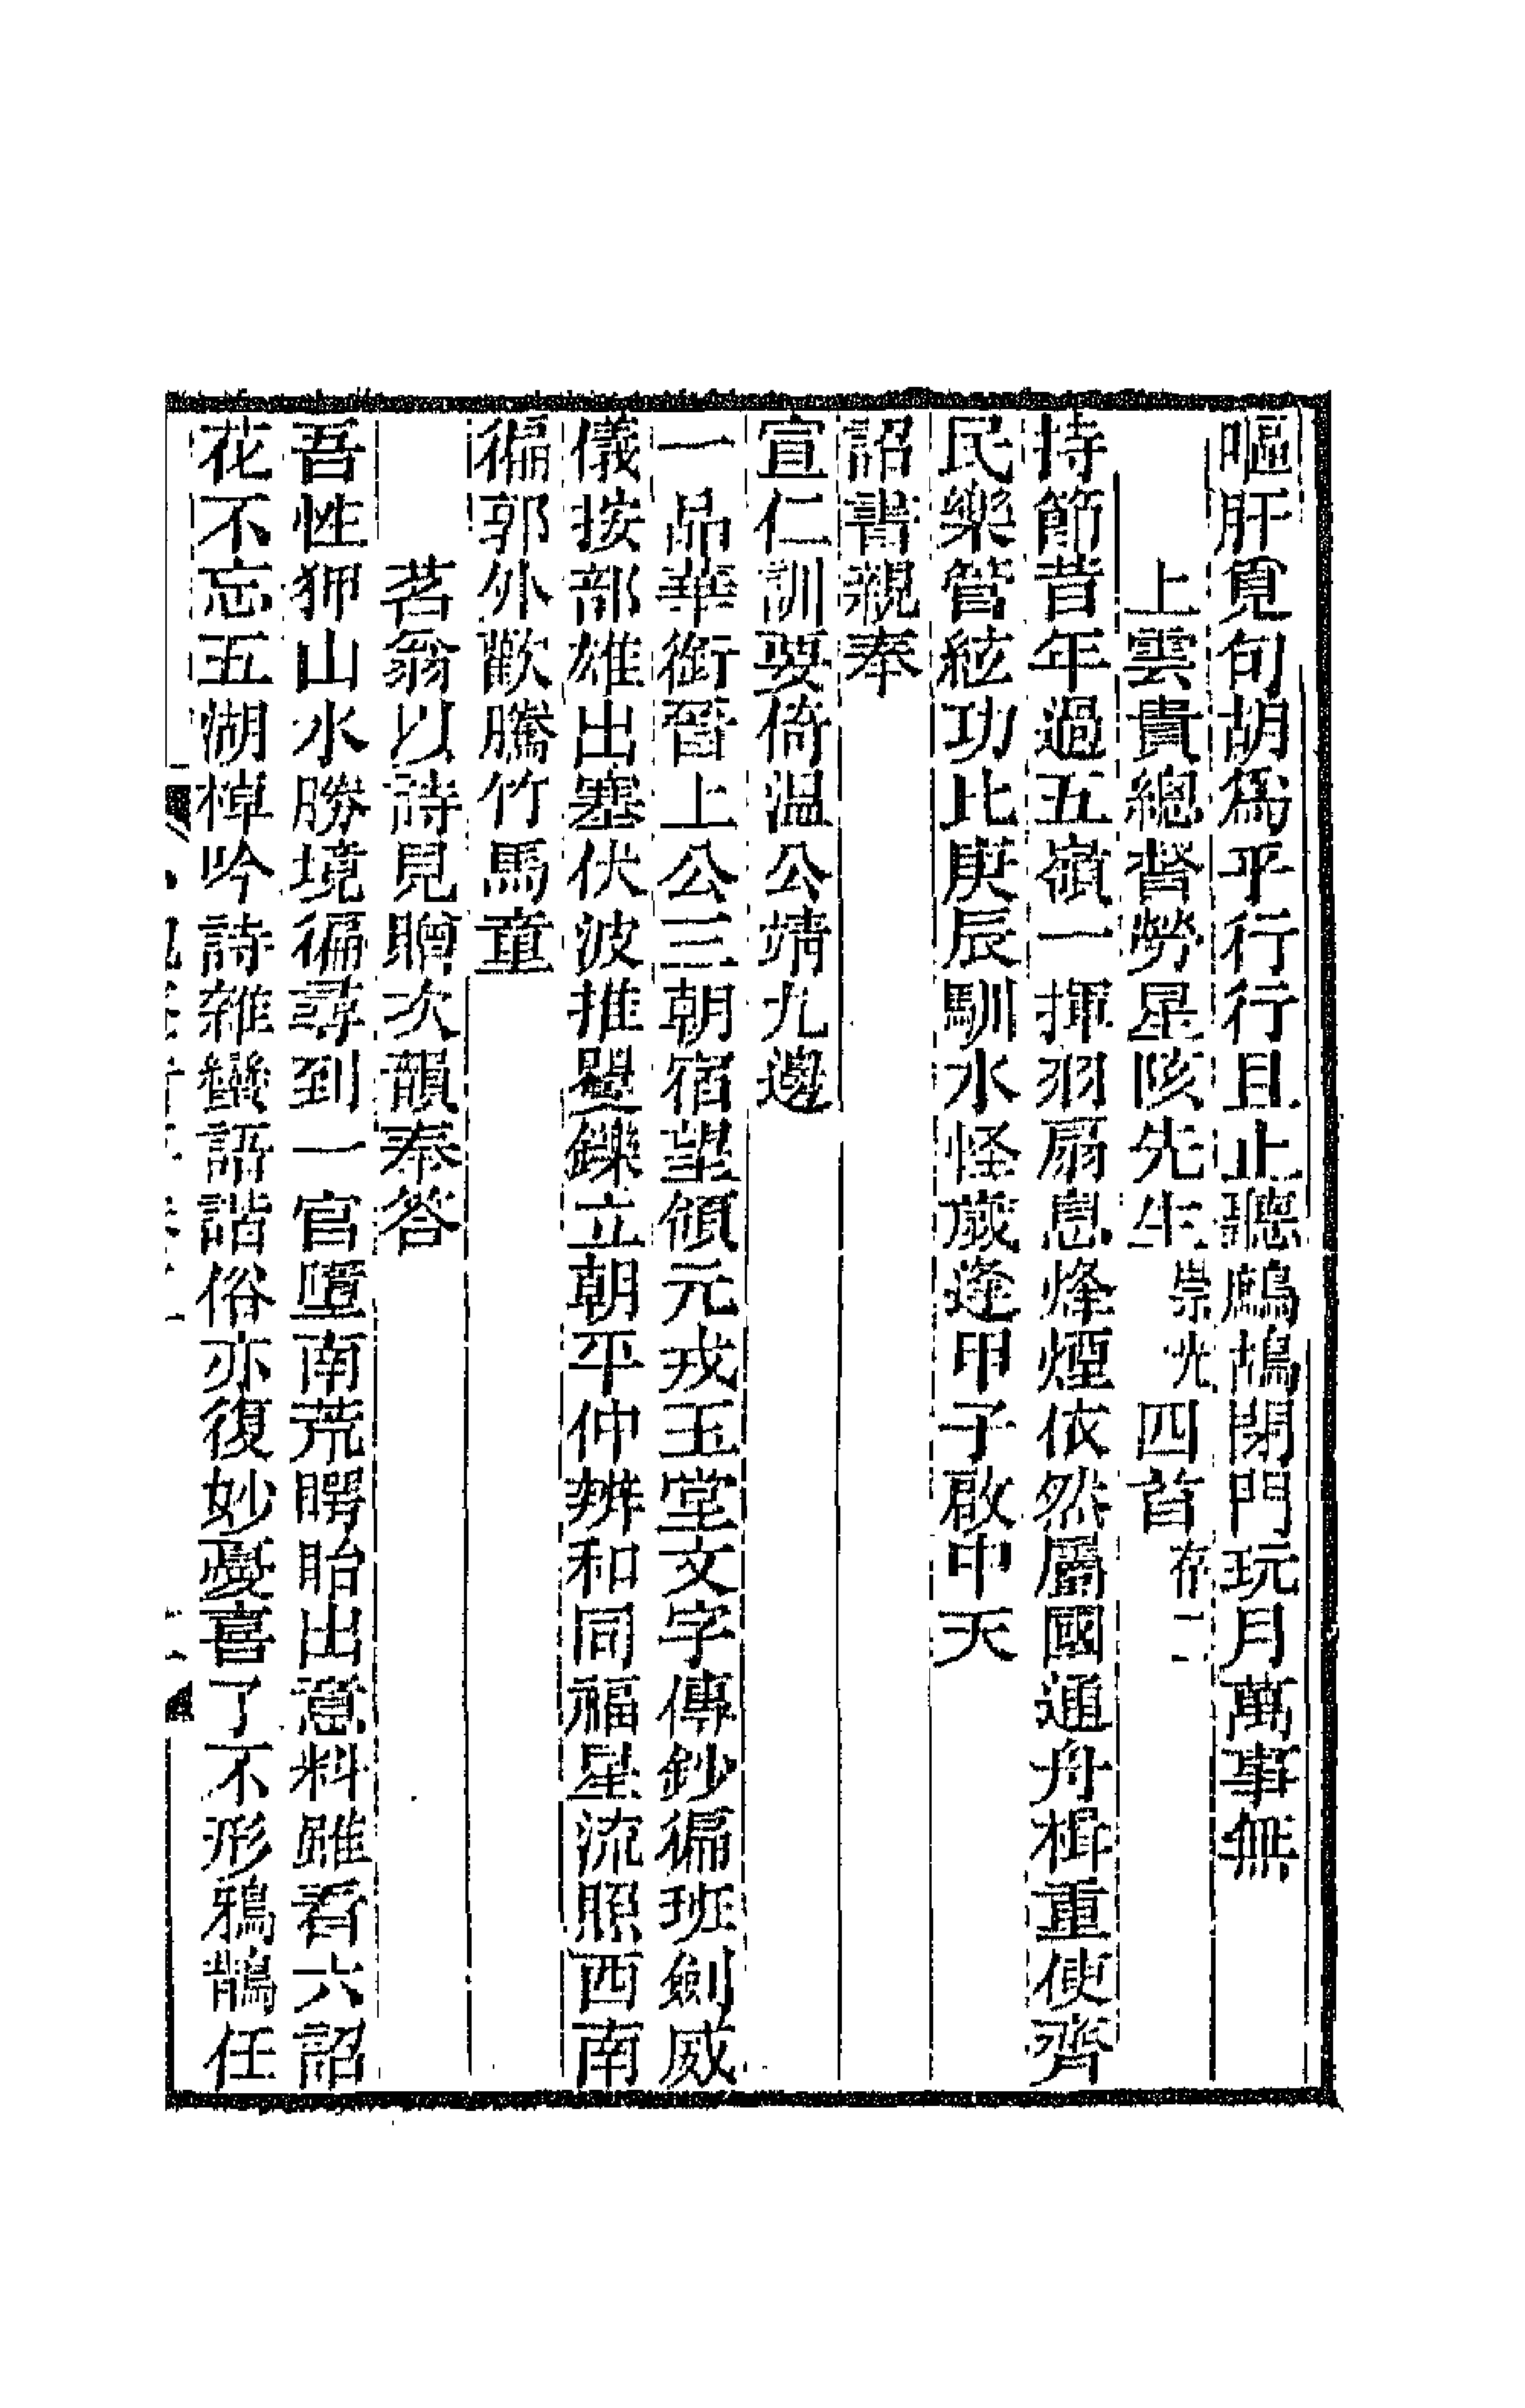 嘔肝覓句胡爲乎行行且止聽鷓鴣閉門玩月萬事無
上雲貴總督勞星陔先生崇光四首存二
持節昔年過五嶺一揮羽扇息烽煙依然屬國通舟楫重使齊
民樂管絃功比庚辰馴水怪歲逢甲子啟中天
詔書親奉
宣仁訓要倚溫公靖九邊
一品華銜晉上公三朝宿望傾元戎玉堂文字傳鈔徧班劍威
儀按部雄出塞伏波推矍鑠立朝平仲辨和同福星流照西南
徧郭外歡騰竹馬童
茗翁以詩見贈次韻奉答
吾性狎山水勝境徧尋到一官墮南荒睅眙出意料雖看六詔
花不忘五湖棹吟詩雜蠻語諧俗亦復妙憂喜了不形鴉鵲任